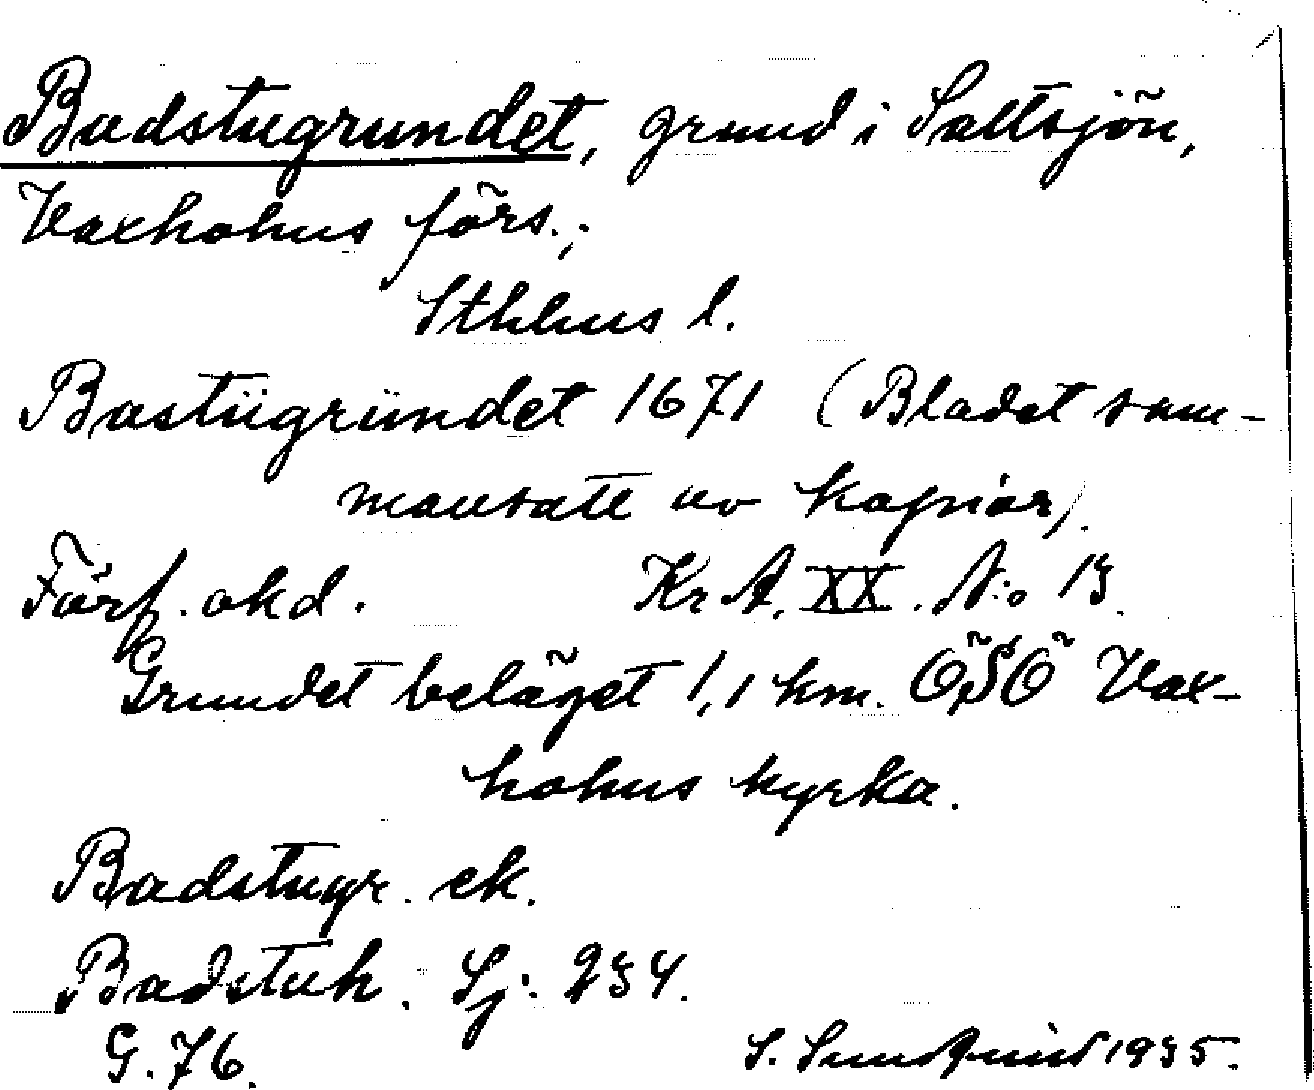 Badstugrundet, grund i Saltsjön,
Vaxholms förs.;
Sthlms l.
Bastügründet 1671 (Bladet sam-
mansatt av kopior).
Förf. okd. Kr A. XX. N:o 13.
Grundet beläget 1,1 km. ÖSÖ Vax-
holms kyrka.
Badstugr. ek.
Badstuh. Sj. 234.
G. 76. S. Sundquist 1935.